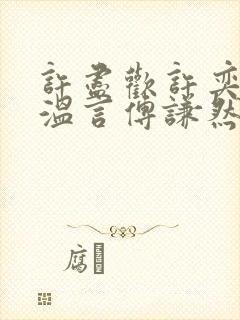 許盡歡許奕
溫言傅謙然
腐